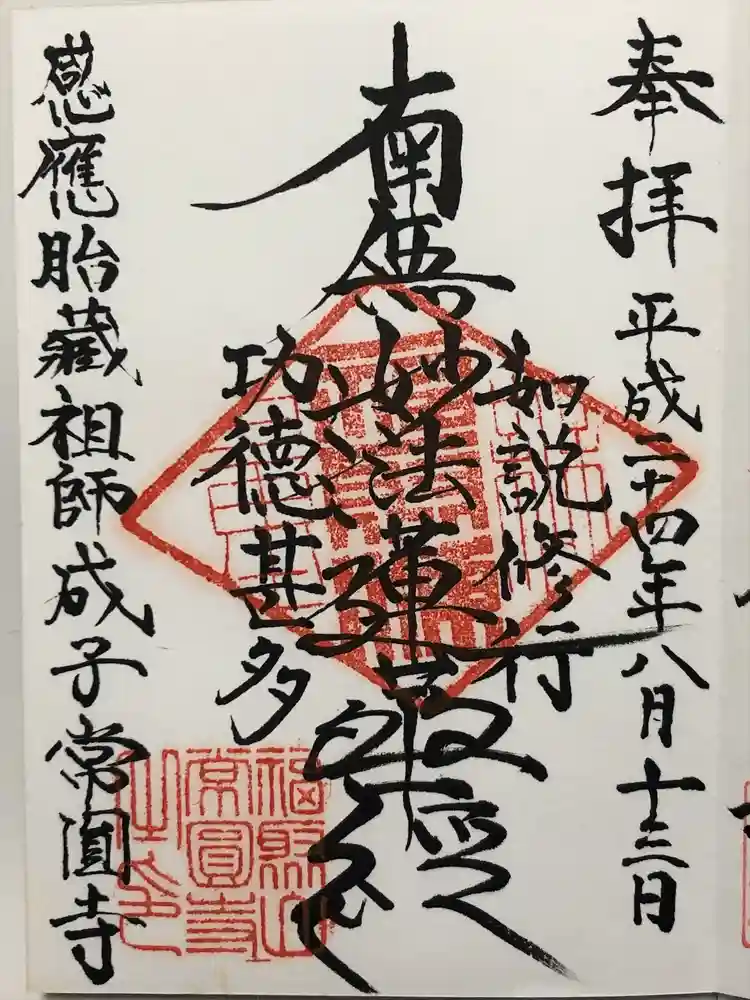 奉拝 平成二十四年八月十三日
如説修行
南無妙法蓮華経
功徳甚多
感應胎蔵祖師成子常圓寺
常圓寺